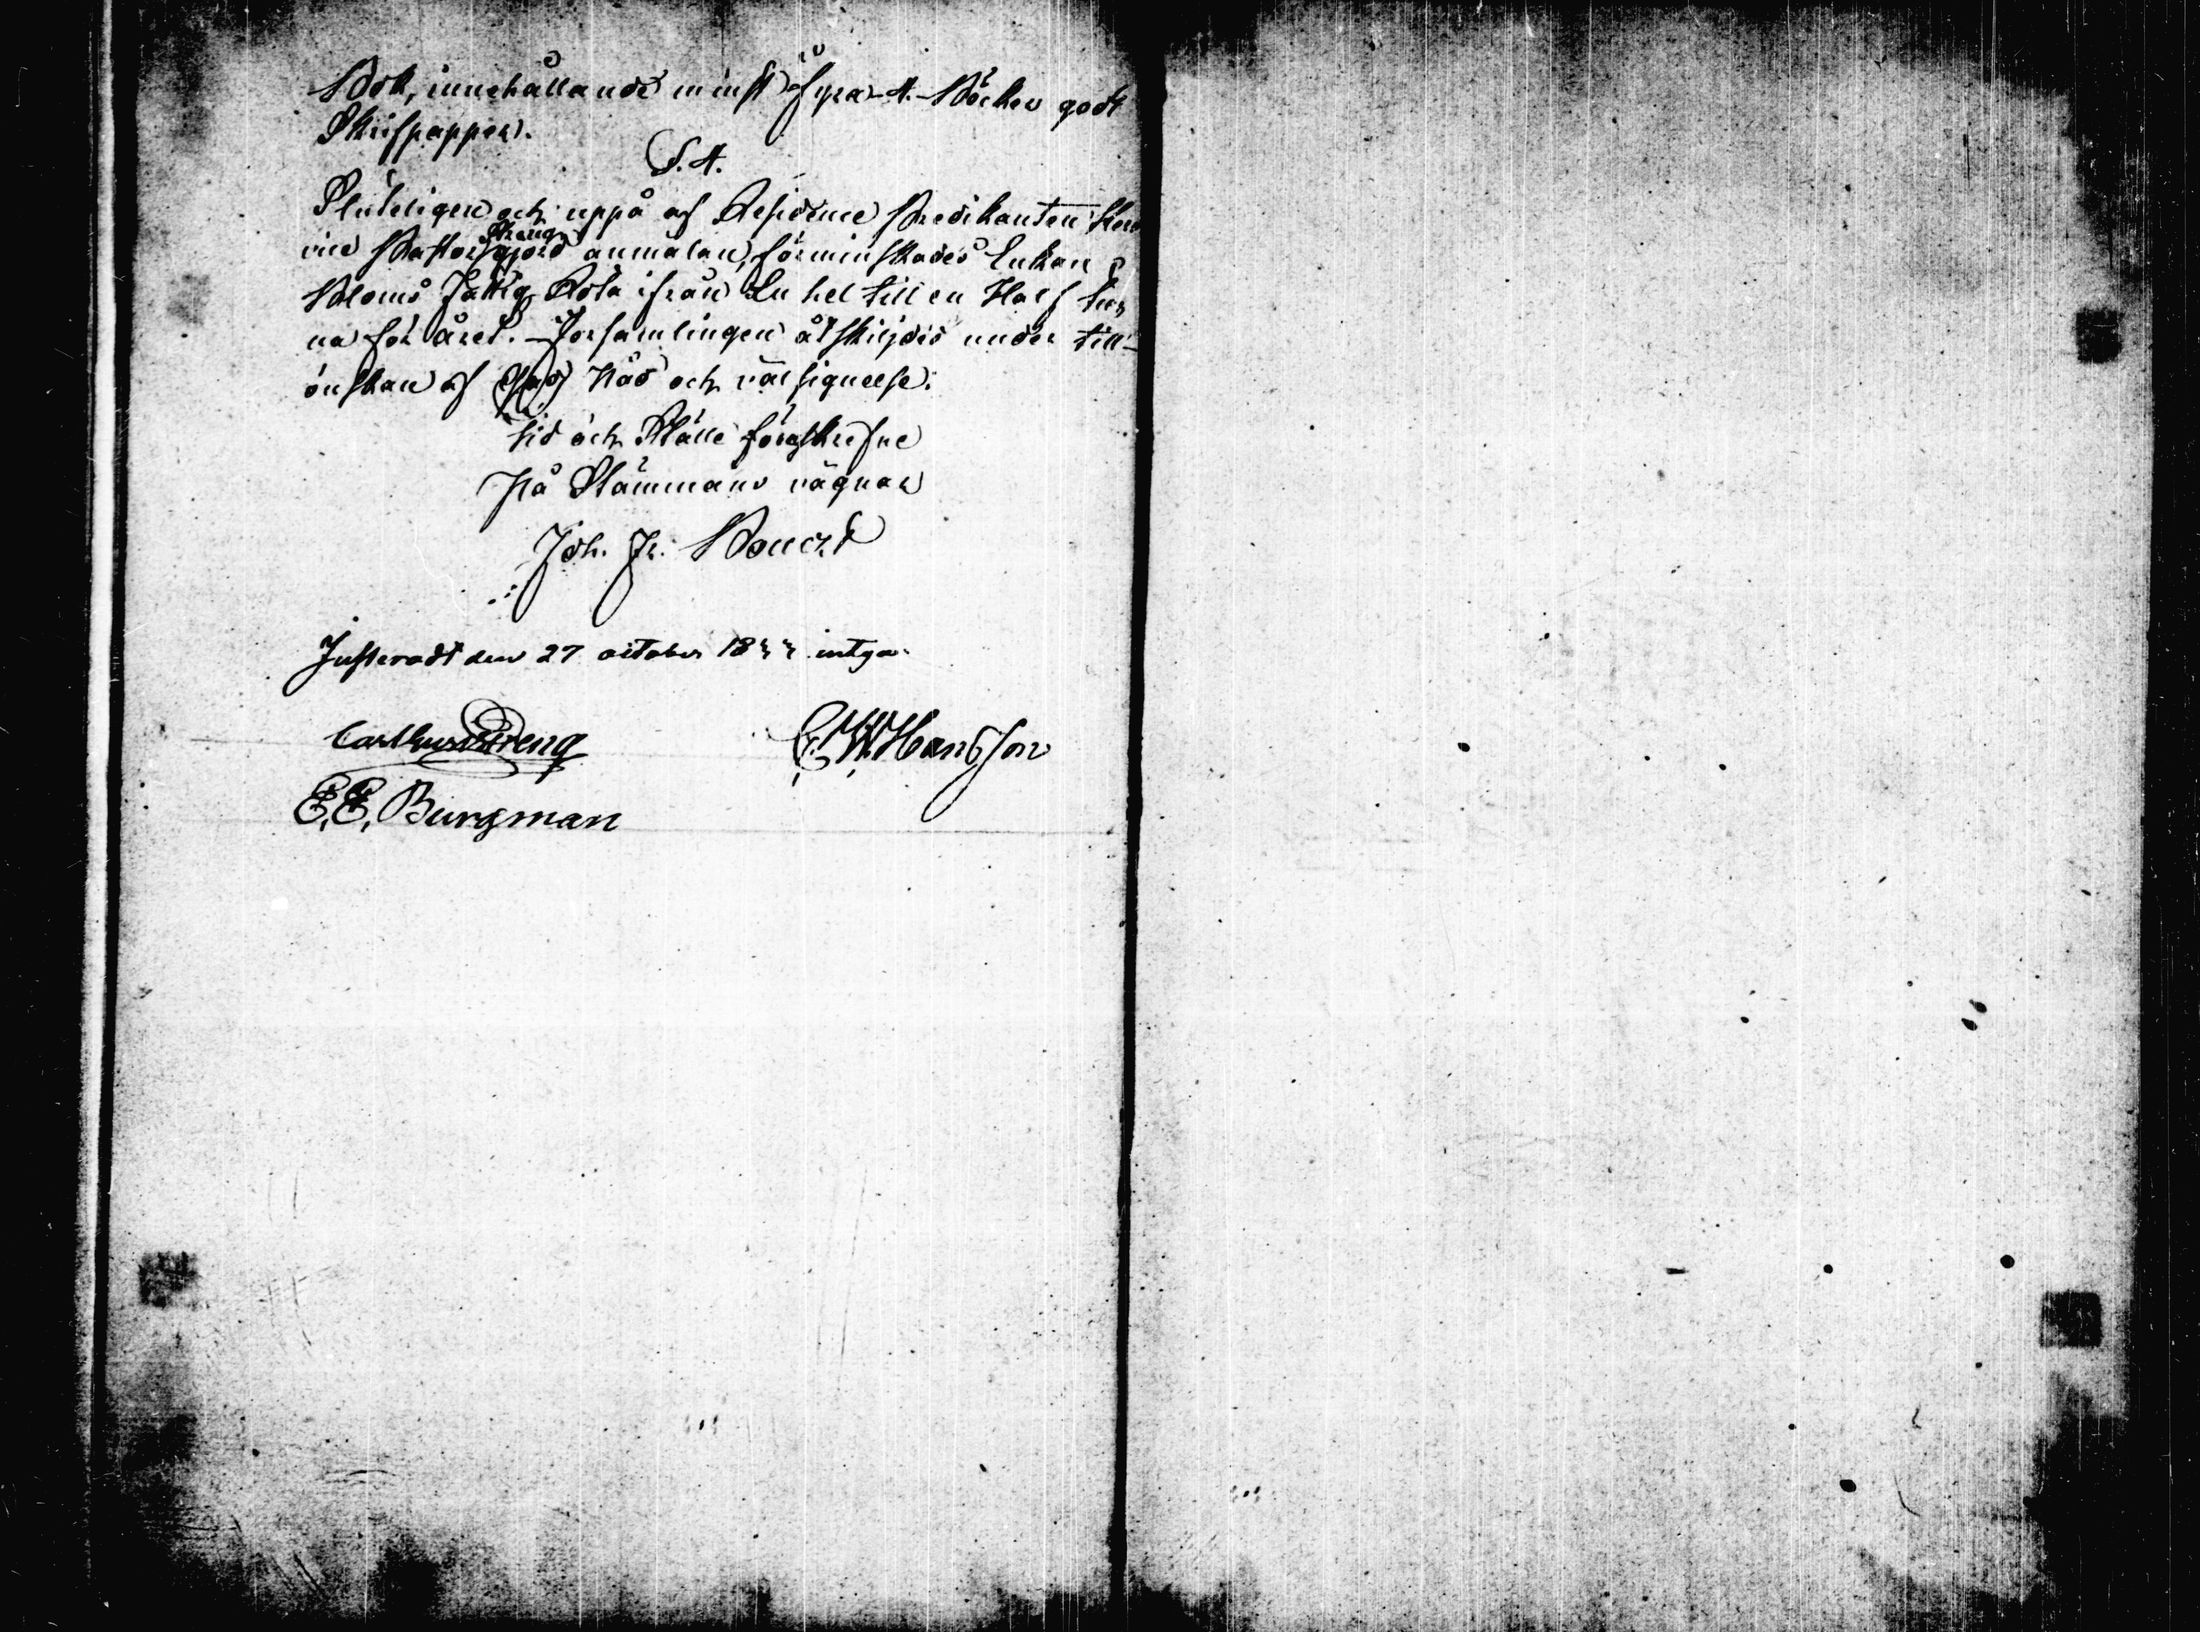 Bok, innehållande minst fyra 4. Böcker godt
Skrifpapper.
§. 4.
Sluteligen och uppå af Residence Predikanten Herr
vice Pastor Streng gjord anmälan, förminskades Enkan
Bloms fattig Åbla ifrån En hel till en Half tun
na för året. Församlingen åtskiljdes under till-
önskan af Guds Nåd och välsignelse.
Tid och Ställe föreskrefne
På Stämmans vägnar
Joh. Fr.
Justeradt den 27 october 1844 intga.
Carl Streng C. W. Hansson
E. E. Burgman